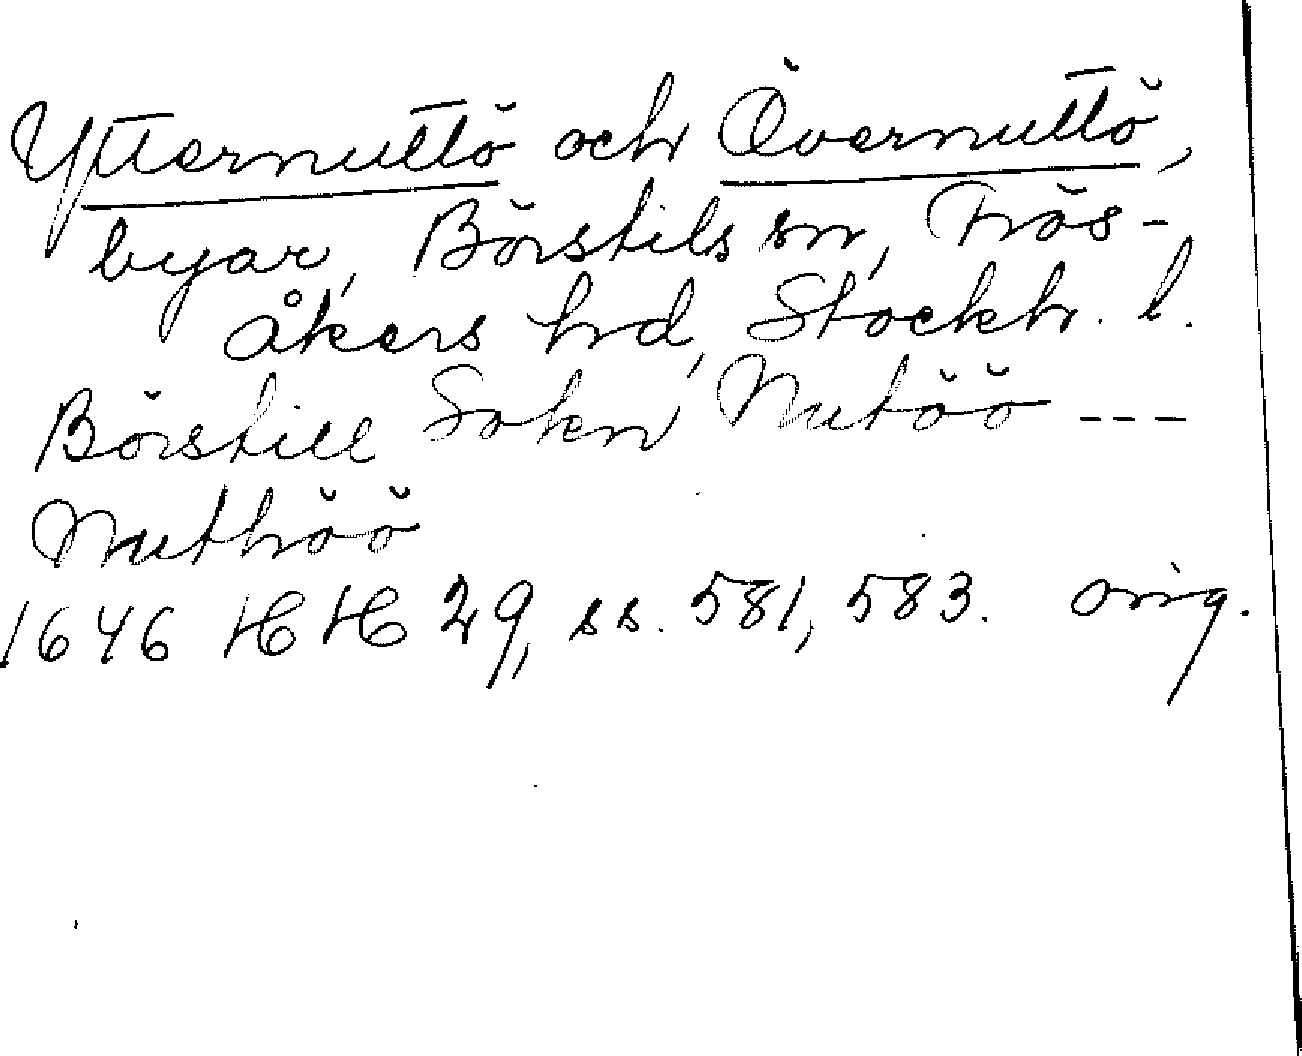 Ytternuttö och Övernuttö,
byar, Börstils sn, Frös-
åkers hd, Stockh. l.
Börstill Sokn, Nutöö ---
Nuthöö
1646 HH 29, ss. 581, 583. orig.